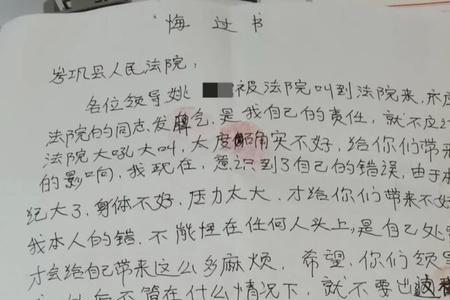 悔过书
岑巩县人民法院:
各位领导姚 被法院叫到法院来,亦应
法院的同志发脾气,是我自己的责任,就不应
法院大吼大叫,太度确实不好,给你们带来
的影响,我现在,意识到了自己的错误,由于
纪大了,身体不好,压力太大,才给你们带来不好
我本人的错,不能怪在任何人头上,是自己处
才会给自己带来这么多麻烦,希望,你们领
不管在什么情况下,就不要出